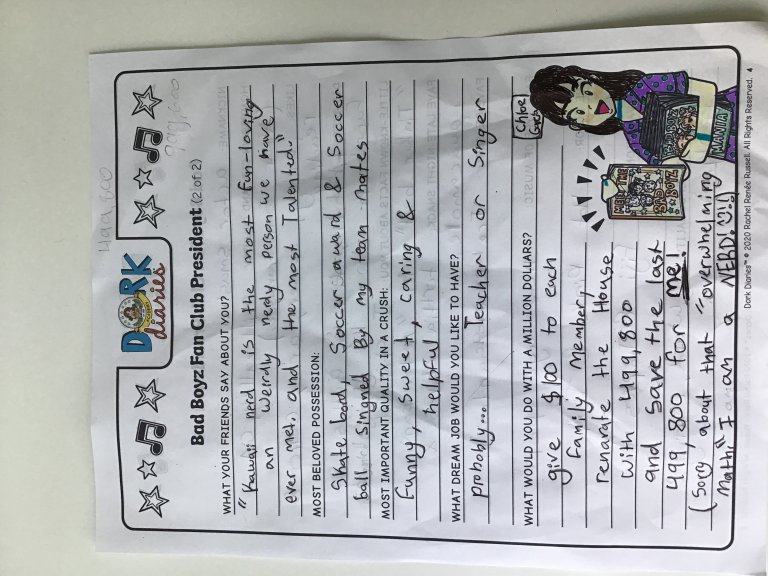 499,800
999,600
DORK
diaries
Bad Boyz Fan Club President (2 of 2)
WHAT YOUR FRIENDS SAY ABOUT YOU?
"Kawaii nerd is the most fun-loving
an weirdly nerdy person we have
ever met. and the most Talented."
MOST BELOVED POSSESSION:
Skate bord, Soccer award & Soccer
ball Singned By my team mates
MOST IMPORTANT QUALITY IN A CRUSH:
Funny, Sweet, caring &
helpful
WHAT DREAM JOB WOULD YOU LIKE TO HAVE?
probably... Teacher or Singer
WHAT WOULD YOU DO WITH A MILLION DOLLARS?
give $100 to each
family Member,
renarate the House
with 499,800
and save the last
499,800 for me!
(Sorry about that "overwhelming
Math" I am a NERD!
Chloe
Garcia
MEET THE
BAD
BOYZ
MANIA
Dork Diaries™ © 2020 Rachel Renée Russell. All Rights Reserved. 4